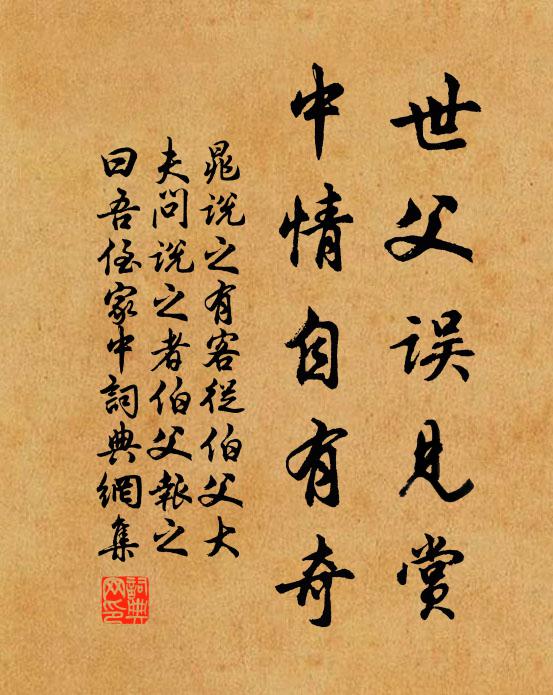 世父误见赏
中情自有奇
晁说之有客从伯父大
夫问说之者伯父报之
曰吾侄家中词典网集
词典
网印